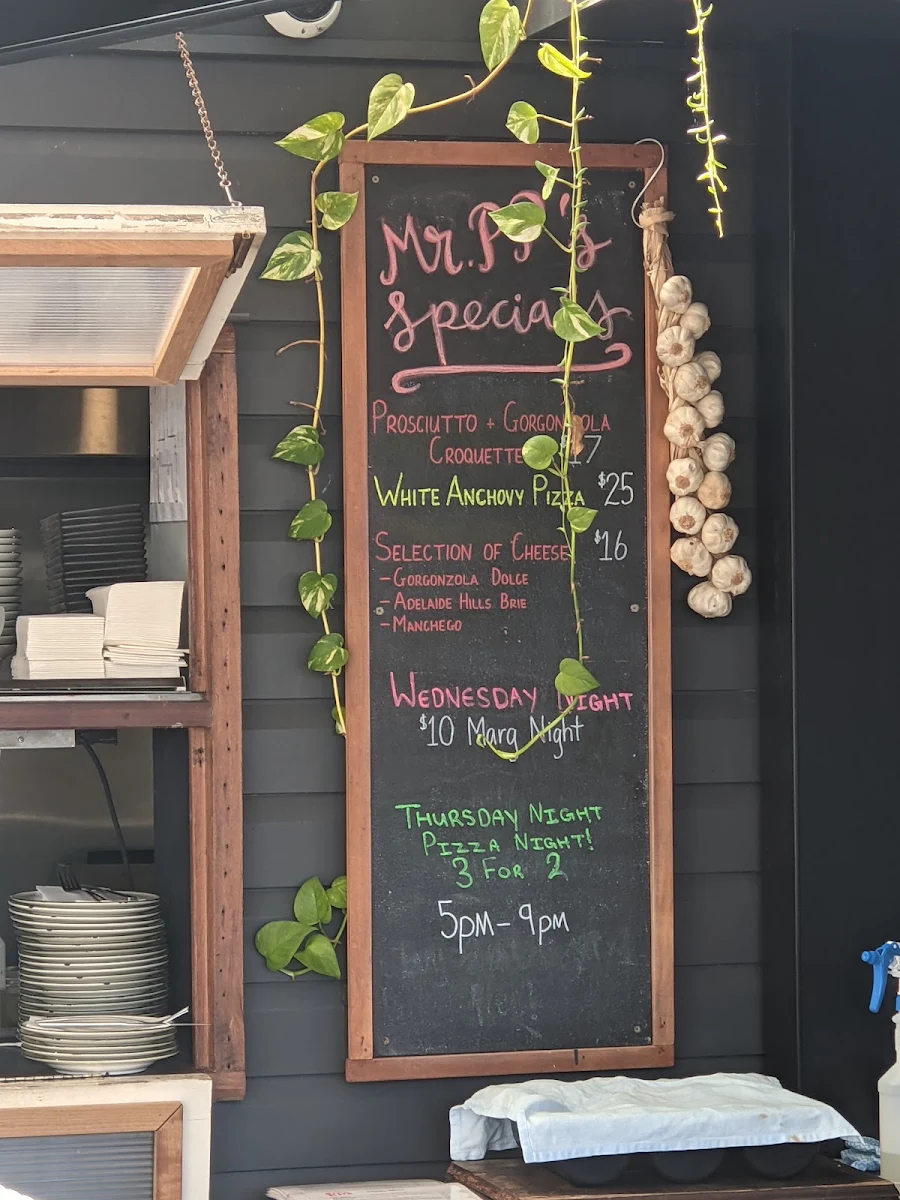 Mr. PP's
Specials
PROSCIUTTO + GORGONZOLA
CROQUETTE $17
WHITE ANCHOVY PIZZA $25
SELECTION OF CHEESE $16
- GORGONZOLA DOLCE
- ADELAIDE HILLS BRIE
- MANCHEGO
WEDNESDAY NIGHT
$10 Marg Night
THURSDAY NIGHT
PIZZA NIGHT!
3 FOR 2
5PM - 9PM